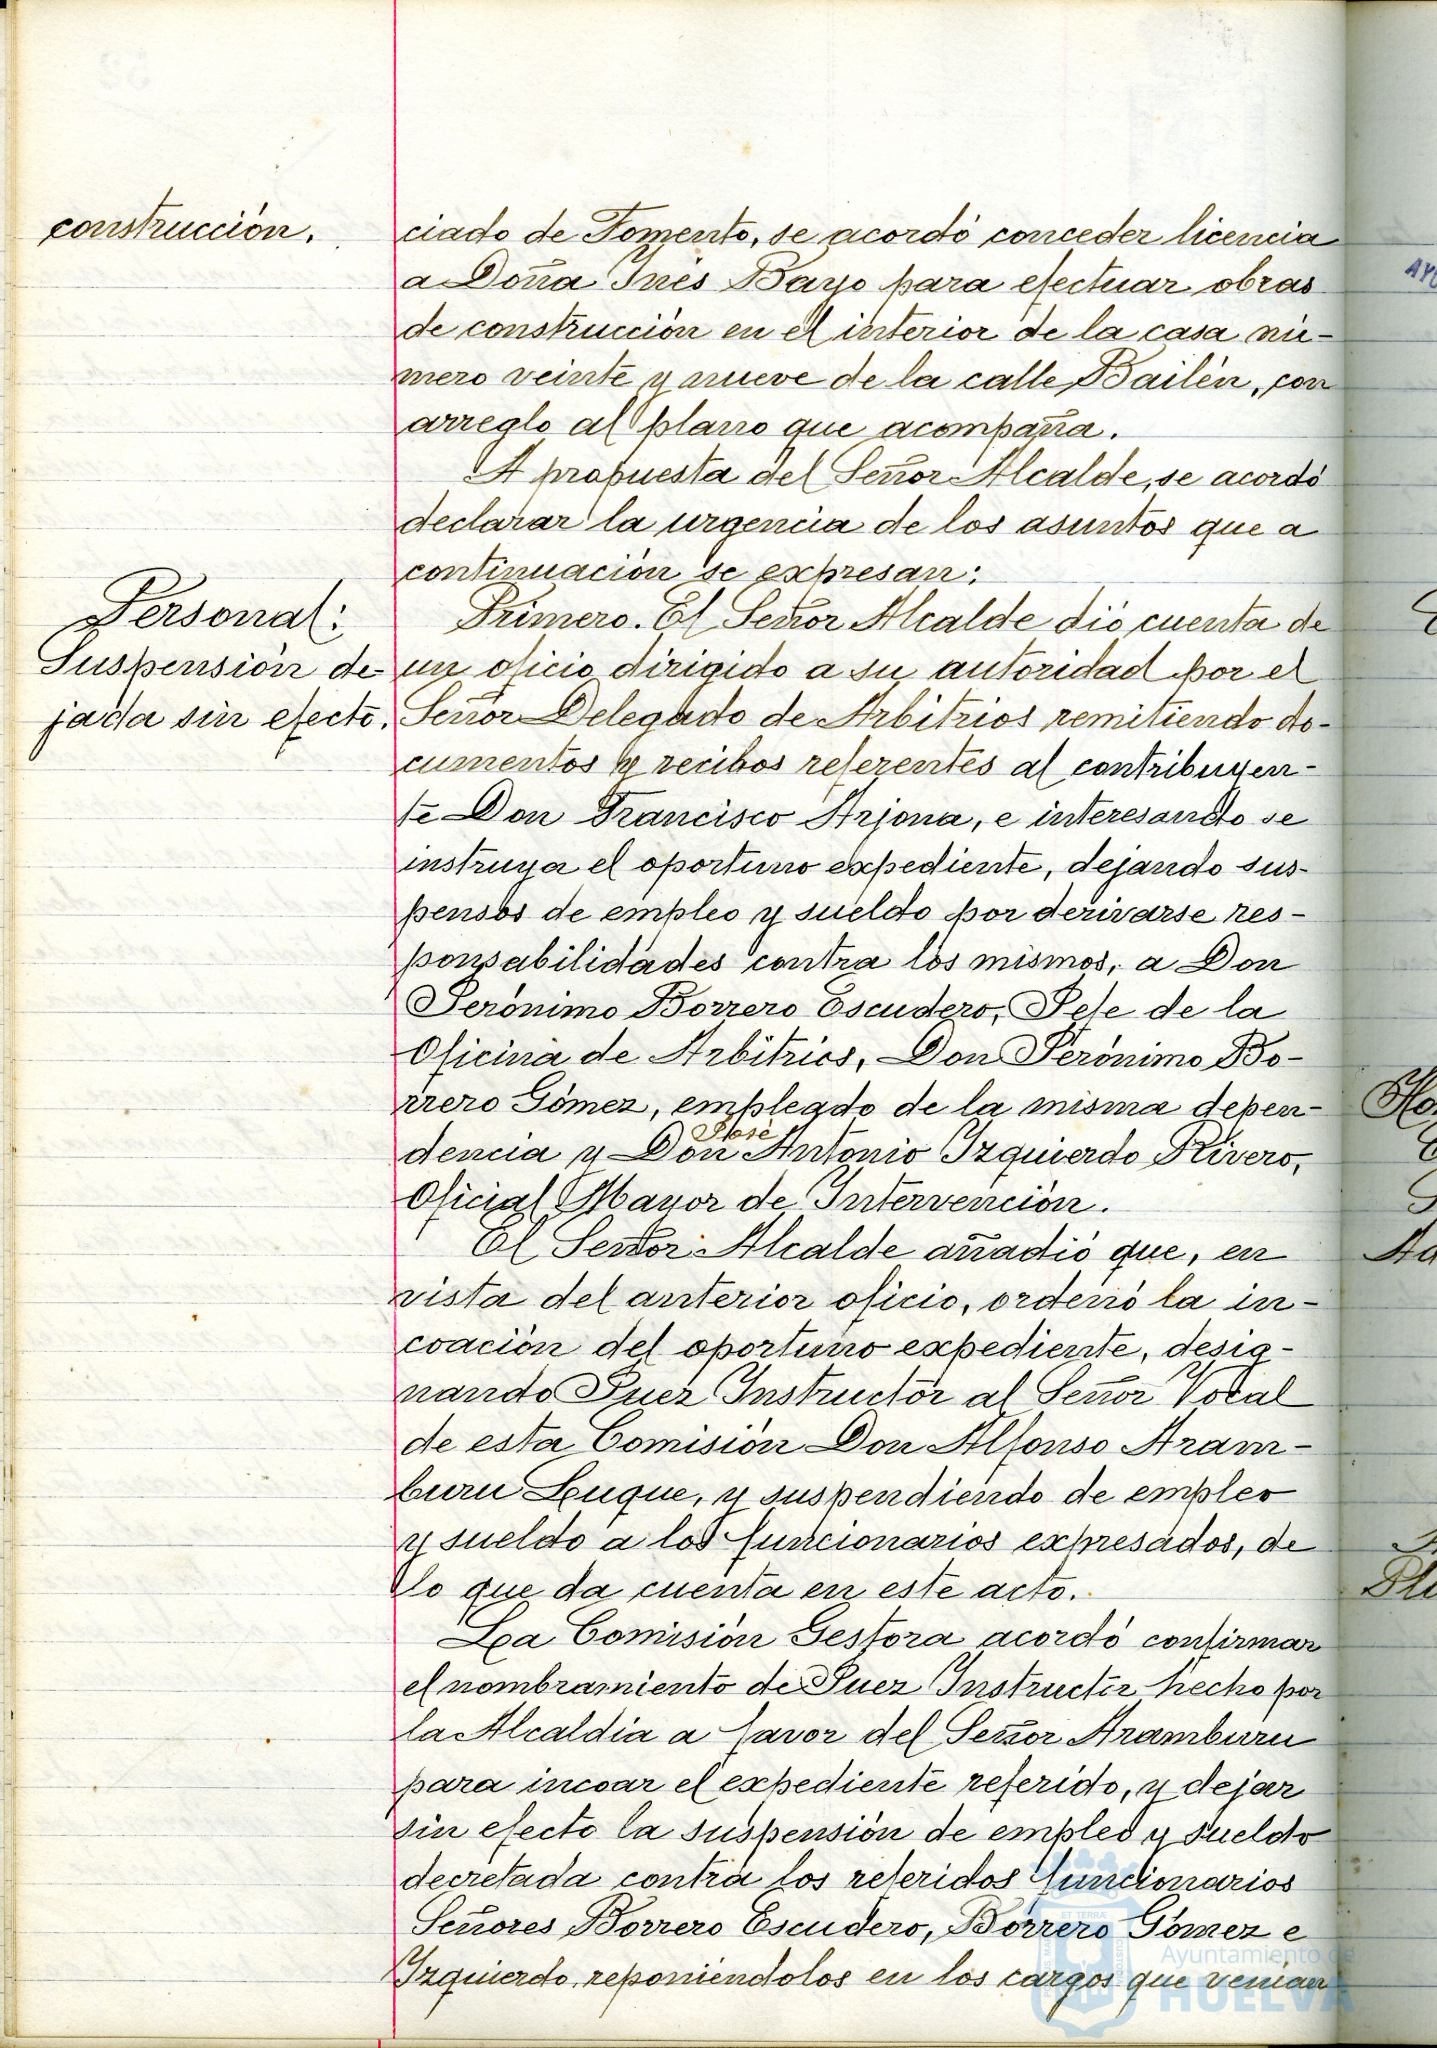 construcción.
ciado de Fomento, se acordó conceder licencia
a Doña Inés Bayo para efectuar obras
de construcción en el interior de la casa nú-
mero veinte y nueve de la calle Bailén, con
arreglo al plano que acompaña.
A propuesta del Señor Alcalde, se acordó
declarar la urgencia de los asuntos que a
continuación se expresan:
Personal:
Suspensión de-
jada sin efecto.
Primero. El Señor Alcalde dió cuenta de
un oficio dirigido a su autoridad por el
Señor Delegado de Arbitrios remitiendo do-
cumentos y recibos referentes al contribuyen-
te Don Francisco Arjona, e interesando se
instruya el oportuno expediente, dejando sus-
pensos de empleo y sueldo por derivarse res-
ponsabilidades contra los mismos, a Don
Jerónimo Borrero Escudero, Jefe de la
Oficina de Arbitrios, Don Jerónimo Bo-
rrero Gómez, empleado de la misma depen-
José
dencia y Don Antonio Izquierdo Rivero,
Oficial Mayor de Intervención.
El Señor Alcalde añadió que, en
vista del anterior oficio, ordenó la in-
coación del oportuno expediente, desig-
nando Juez Instructor al Señor Vocal
de esta Comisión Don Alfonso Aram-
buru Luque, y suspendiendo de empleo
y sueldo a los funcionarios expresados, de
lo que da cuenta en este acto.
La Comisión Gestora acordó confirmar
el nombramiento de Juez Instructor hecho por
la Alcaldía a favor del Señor Aramburu
para incoar el expediente referido, y dejar
sin efecto la suspensión de empleo y sueldo
decretada contra los referidos funcionarios
Señores Borrero Escudero, Borrero Gómez e
Izquierdo, reponiéndolos en los cargos que venían
Ayuntamiento de
HUELVA